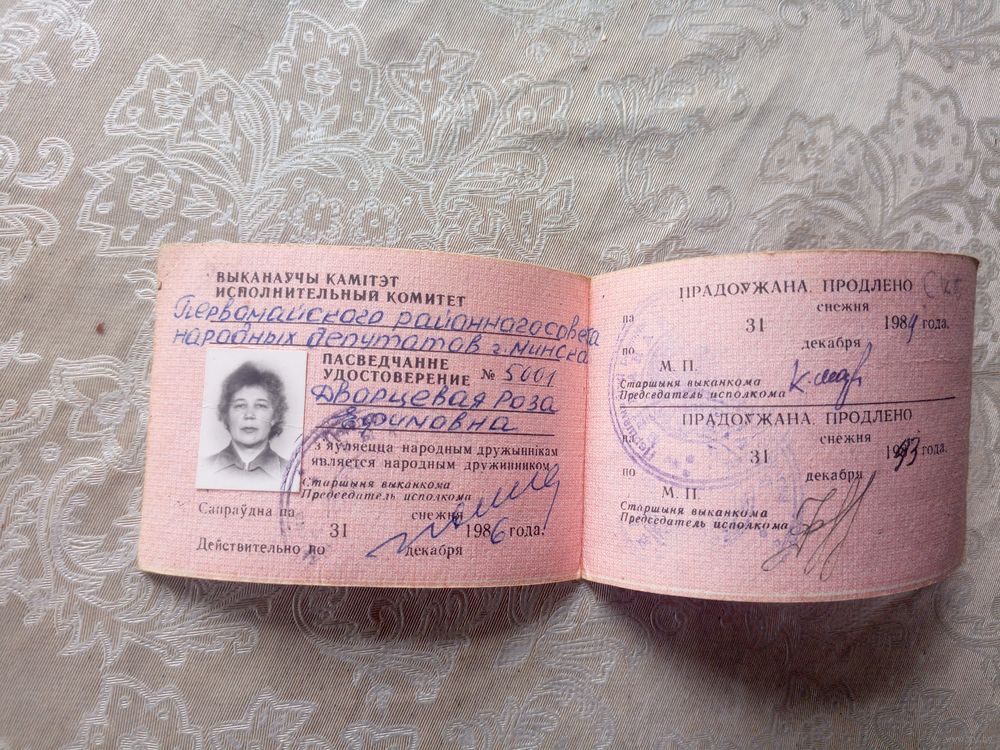 ВЫКАНАУЧЫ КАМІТЭТ
ИСПОЛНИТЕЛЬНЫЙ КОМИТЕТ
Первомайского районного совета
народных депутатов г. Минска
ПАСВЕДЧАННЕ
УДОСТОВЕРЕНИЕ № 5001
Дворцевая Роза
Ефимовна
з'яуляецца народным дружыннікам
является народным дружинником
Старшыня выканкома
Председатель исполкома
Сапраўдна па
31 снежня 1986 года.
Действительно по декабря
ПРАДОУЖАНА. ПРОДЛЕНО
па снежня
31 1989 года.
по декабря
М. П.
Старшыня выканкома
Председатель исполкома
ПРАДОУЖАНА. ПРОДЛЕНО
па снежня
31 1993 года.
по декабря
М. П.
Старшыня выканкома
Председатель исполкома